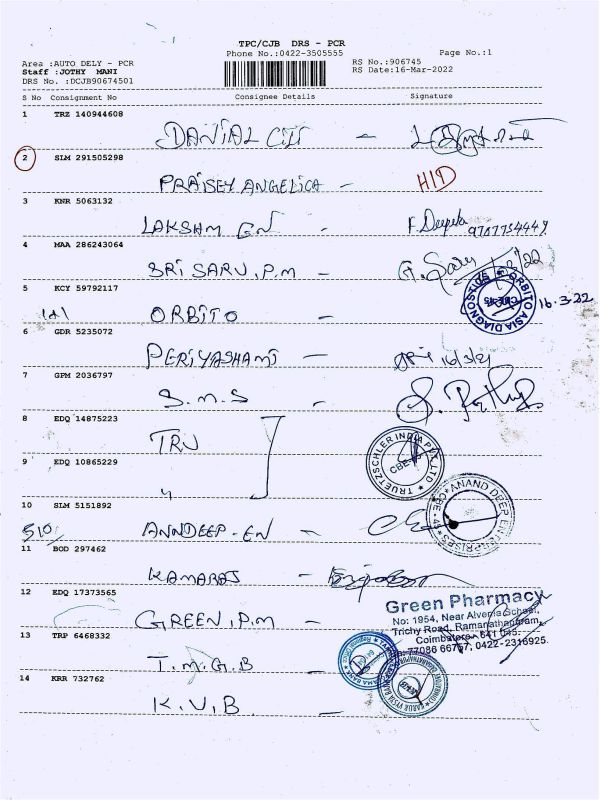 TPC/CJB DRS - PCR
Phone No.:0422-3505555
Page No.:1
Area :AUTO DELY - PCR
RS No.:906745
Staff :JOTHY MANI
RS Date:16-Mar-2022
DRS No. :DCJB90674501
S No Consignment No Consignee Details Signature
1 TRZ 140944608
DANIAL CIL -
2 SLM 291505298
PRAISEY ANGELICA - HID
3 KNR 5063132
LAKSHM EN - F. Deepika 9787754449
4 MAA 286243064
SRI SARV, P.M - G.
5 KCY 59792117
ORBITO - ORBITO ASIA DIAGNOSTICS CBE-45 16.3.22
6 GDR 5235072
PERIYASHAMI - 16/3/21
7 GPM 2036797
S.M.S -
8 EDQ 14875223
TRU
TRUETZSCHLER INDIA PVT. LTD
9 EDQ 10865229
"
10 SLM 5151892
510/ ANNDEEP-EN -
ANAND DEEP ENTERPRISES CBE-45
11 BOD 297462
KAMARAJ -
12 EDQ 17373565
GREEN, P.M -
Green Pharmacy
No: 1954, Near Alvernia School,
Trichy Road, Ramanathapuram,
Coimbatore- 641 045.
77086 66757, 0422-2316925.
13 TRP 6468332
T.M.G.B -
14 KRR 732762
K.V.B -